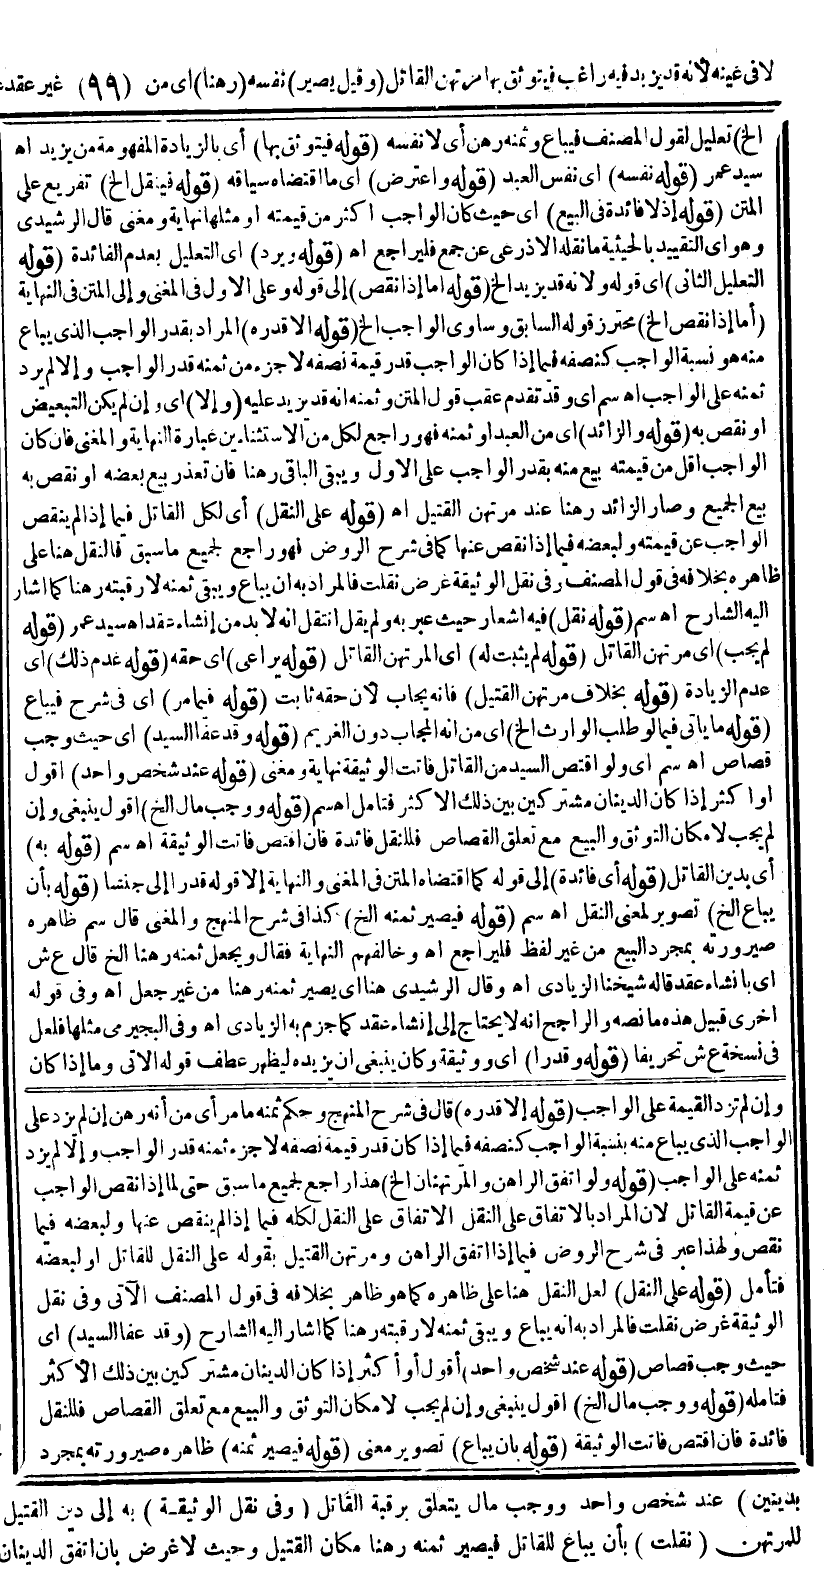 لا في عينه لانه قد يزيد فيه راغب فيتوثق بها مرتهن القاتل (وقيل يصير) نفسه (رهنا) اى من (٩٩) غير عقد
الخ) تعليل لقول المصنف فيباع وثمنه رهن أى لا نفسه (قوله فيتوثق بها) أى بالزيادة المفهومة من يزيد اه
سيد عمر (قوله نفسه) اى نفس العبد (قوله واعترض) اى ما اقتضاه سياقه (قوله فينقل الخ) تفريع على
المتن (قوله إذ لا فائدة فى البيع) اى حيث كان الواجب اكثر من قيمته او مثلها نهاية ومغنى قال الرشيدى
وهو اى التقييد بالحيثية ما نقله الاذرعى عن جمع فليراجع اه (قوله ويرد) اى التعليل بعدم الفائدة (قوله
التعليل الثانى) اى قوله ولانه قد يزيد الخ (قوله اما إذا نقص) إلى قوله وعلى الاول فى المغنى وإلى المتن فى النهاية
(أما إذا نقص الخ) محترز قوله السابق وساوى الواجب الخ (قوله الا قدره) المراد بقدر الواجب الذى يباع
منه هو نسبة الواجب كنصفه فيما إذا كان الواجب قدر قيمة نصفه لا جزء من ثمنه قدر الواجب وإلا لم يزد
ثمنه على الواجب اه سم اى وقد تقدم عقب قول المتن وثمنه انه قد يزيد عليه (وإلا) اى وإن لم يكن التبعيض
او نقص به (قوله والزائد) اى من العبد او ثمنه فهو راجع لكل من الاستثناءين عبارة النهاية والمغنى فان كان
الواجب اقل من قيمته بيع منه بقدر الواجب على الاول ويبقى الباقى رهنا فان تعذر بيع بعضه او نقص به
بيع الجميع وصار الزائد رهنا عند مرتهن القتيل اه (قوله على النقل) أى لكل القاتل فيما إذا لم ينقص
الواجب عن قيمته ولبعضه فيما إذا نقص عنها كما فى شرح الروض فهو راجع لجميع ما سبق فالنقل هنا على
ظاهره بخلافه فى قول المصنف وفى نقل الوثيقة غرض نقلت فالمراد به ان يباع ويبقى ثمنه لا رقبته رهنا كما اشار
اليه الشارح اه سم (قوله نقل) فيه اشعار حيث عبر به ولم يقل انتقل انه لا بد من إنشاء عقد اه سيد عمر (قوله
لم يجب) اى مرتهن القاتل (قوله لم يثبت له) اى المرتهن القاتل (قوله يراعى) اى حقه (قوله عدم ذلك) اى
عدم الزيادة (قوله بخلاف مرتهن القتيل) فانه يجاب لان حقه ثابت (قوله فيما مر) اى فى شرح فيباع
(قوله ما يأتى فيما لو طلب الوارث الخ) اى من انه المجاب دون الغريم (قوله وقد عفا السيد) اى حيث وجب
قصاص اه سم اى ولو اقتص السيد من القاتل فاتت الوثيقة نهاية ومغنى (قوله عند شخص واحد) اقول
او اكثر إذا كان الدينان مشتركين بين ذلك الاكثر فتامل اه سم (قوله ووجب مال الخ) اقول ينبغى وإن
لم يجب لامكان التوثق والبيع مع تعلق القصاص فللنقل فائدة فان اقتص فاتت الوثيقة اه سم (قوله به)
أى بدين القاتل (قوله أى فائدة) إلى قوله كما اقتضاه المتن فى المغنى والنهاية إلا قوله قدرا إلى جنسا (قوله بأن
يباع الخ) تصوير لمعنى النقل اه سم (قوله فيصير ثمنه الخ) كذا فى شرح المنهج والمغنى قال سم ظاهره
صيرورته بمجرد البيع من غير لفظ فليراجع اه وخالفهم النهاية فقال ويجعل ثمنه رهنا الخ قال ع ش
اى بانشاء عقد قاله شيخنا الزيادى اه وقال الرشيدى هنا اى يصير ثمنه رهنا من غير جعل اه وفى قوله
اخرى قبيل هذه ما نصه والراجح انه لا يحتاج إلى إنشاء عقد كما جزم به الزيادى اه وفى البجيرمى مثلها فلعل
فى نسخة ع ش تحريفا (قوله وقدرا) اى ووثيقة وكان ينبغى ان يزيده ليظهر عطف قوله الاتى وما إذا كان
وإن لم تزد القيمة على الواجب (قوله إلا قدره) قال فى شرح المنهج وحكم ثمنه ما مر أى من أنه رهن إن لم يزد على
الواجب الذى يباع منه بنسبة الواجب كنصفه فيما إذا كان قدر قيمة نصفه لا جزء ثمنه قدر الواجب وإلا لم يزد
ثمنه على الواجب (قوله ولو اتفق الراهن والمرتهنان الخ) هذا راجع لجميع ما سبق حتى لما إذا نقص الواجب
عن قيمة القاتل لان المراد بالاتفاق على النقل الاتفاق على النقل لكله فيما إذا لم ينقص عنها ولبعضه فيما
نقص ولهذا عبر فى شرح الروض فيما إذا اتفق الراهن ومرتهن القتيل بقوله على النقل للقاتل او لبعضه
فتأمل (قوله على النقل) لعل النقل هنا على ظاهره كما هو ظاهر بخلافه فى قول المصنف الآتى وفى نقل
الوثيقة غرض نقلت فالمراد به انه يباع ويبقى ثمنه لا رقبته رهنا كما اشار اليه الشارح (وقد عفا السيد) اى
حيث وجب قصاص (قوله عند شخص واحد) أقول أو أكثر إذا كان الدينان مشتركين بين ذلك الأكثر
فتامله (قوله ووجب مال الخ) اقول ينبغى وإن لم يجب لامكان التوثق والبيع مع تعلق القصاص فللنقل
فائدة فان اقتص فاتت الوثيقة (قوله بان يباع) تصوير معنى (قوله فيصير ثمنه) ظاهره صيرورته بمجرد
بدينين) عند شخص واحد ووجب مال يتعلق برقبة القاتل (وفى نقل الوثيقة) به إلى دين القتيل
للمرتهن (نقلت) بأن يباع للقاتل فيصير ثمنه رهنا مكان القتيل وحيث لا غرض بان اتفق الدينان